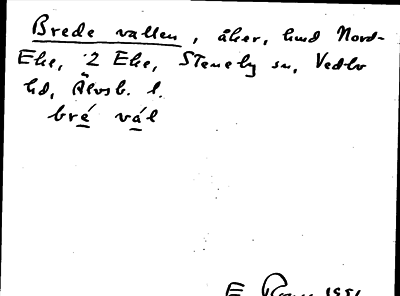 Brede vallen, åker, hmd Nord-
Ehe, 2 Ehe, Steneby sn, Vedbo
hd, Älvsb. l.
bré vál
E